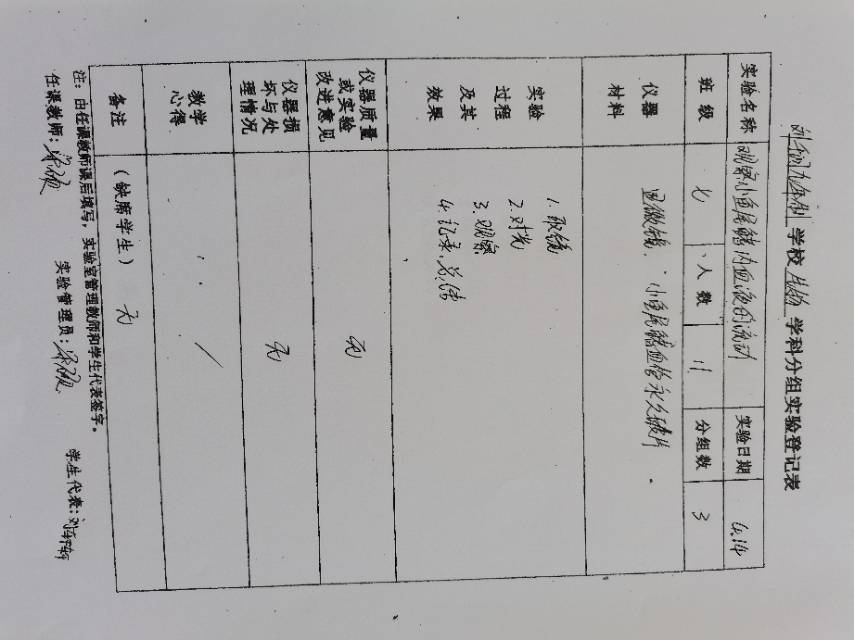 九年制 学校 生物 学科分组实验登记表
实验名称 观察小鱼尾鳍内血液的流动 实验日期 6.14
班级 七 人数 11 分组数 3
仪器材料 显微镜、小鱼尾鳍血管永久玻片.
实验过程及其效果
1.取镜
2.对光
3.观察
4.记录、总结
仪器质量或实验改进意见 无
仪器损坏与处理情况 无
教学心得 /
备注 (缺席学生) 无
注:由任课教师课后填写,实验室管理教师和学生代表签字。
任课教师: 实验管理员: 学生代表: